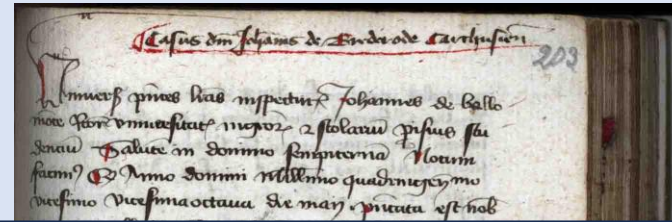 Casus dni Johannis de Brederode Carthusien
203
Univers pntes lras inspectur Johannes de bello
mote Rcor universitat mgror & scolariu pisius stu
denciu Salute in domino sempiterna Notum
facim' Q Anno domini millimo quadringen mo
vicesimo vicesimaoctava die maij pntata est nob